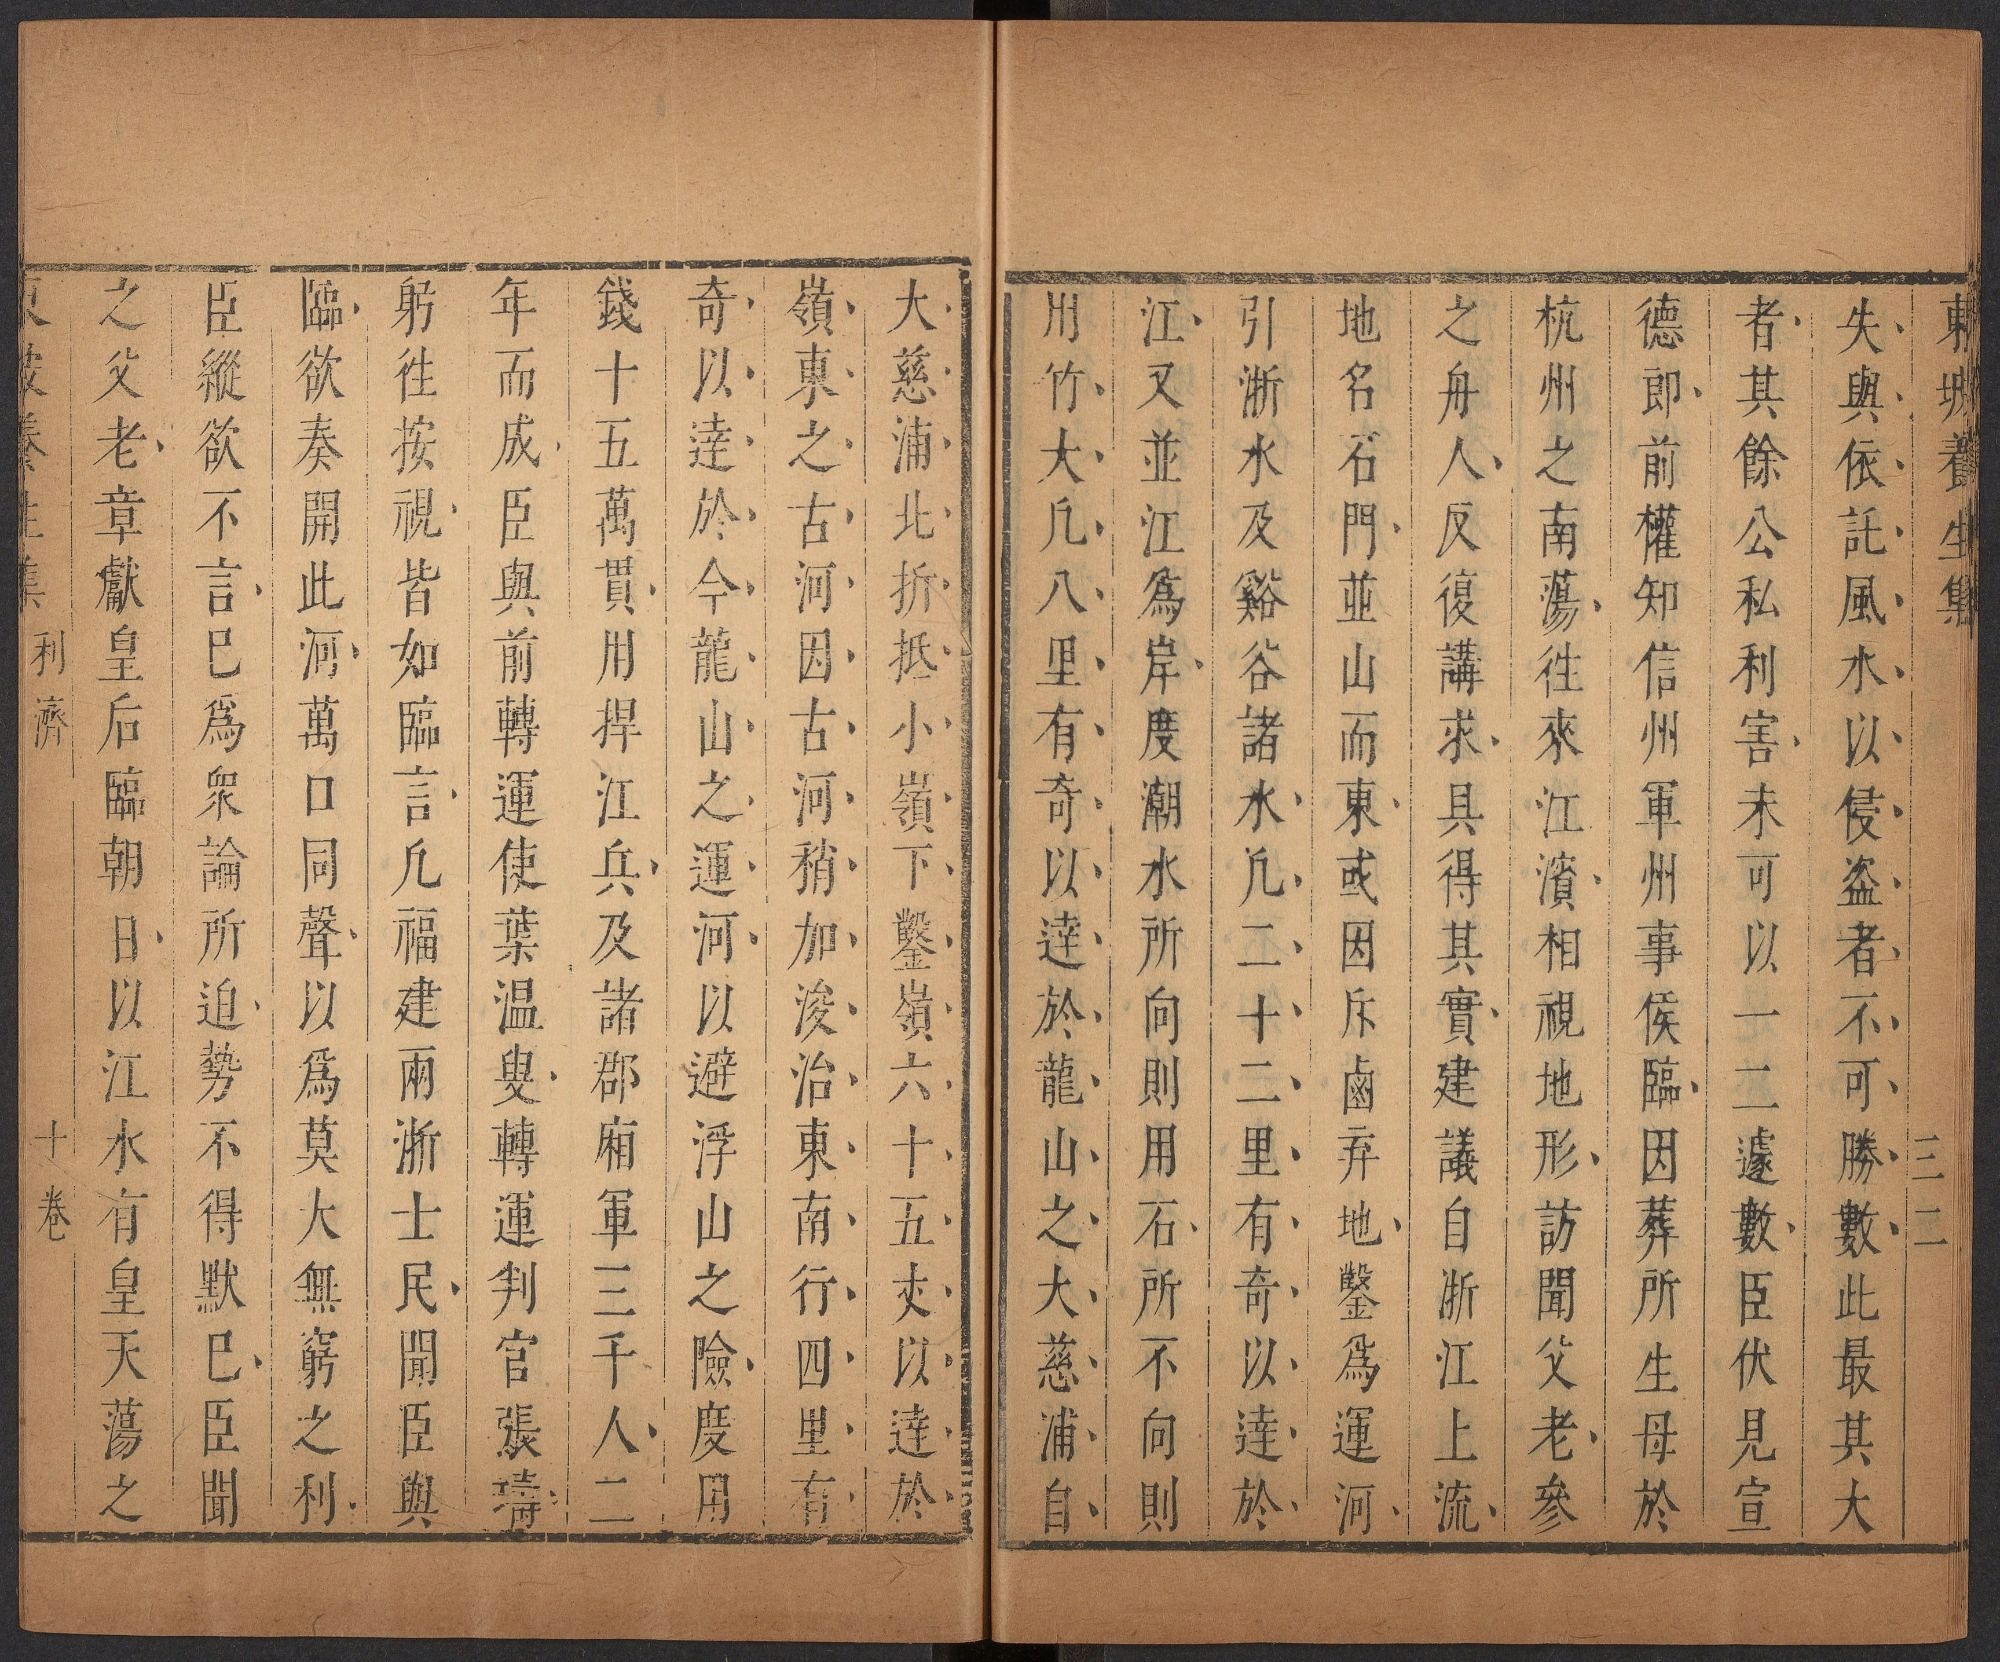 東坡養生集 三二
失與依託風水以侵盜者不可勝數此最其大
者其餘公私利害未可以一二遽數臣伏見宣
德郎前權知信州軍州事侯臨因葬所生母於
杭州之南蕩徃來江濱相視地形訪聞父老參
之舟人反復講求具得其實建議自浙江上流
地名石門並山而東或因斥鹵弃地鑿爲運河
引浙水及谿谷諸水凡二十二里有奇以達於
江又並江爲岸度潮水所向則用石所不向則
用竹大凡八里有奇以達於龍山之大慈浦自
大慈浦北折抵小嶺下鑿嶺六十五丈以達於
嶺東之古河因古河稍加浚治東南行四里有
奇以達於今龍山之運河以避浮山之險度用
錢十五萬貫用捍江兵及諸郡廂軍三千人二
年而成臣與前轉運使葉温叟轉運判官張璹
躬徃按視皆如臨言凡福建兩浙士民聞臣與
臨欲奏開此河萬口同聲以爲莫大無窮之利
臣縱欲不言巳爲衆論所迫勢不得默巳臣聞
之父老章獻皇后臨朝日以江水有皇天蕩之
東坡養生集 利濟 十卷